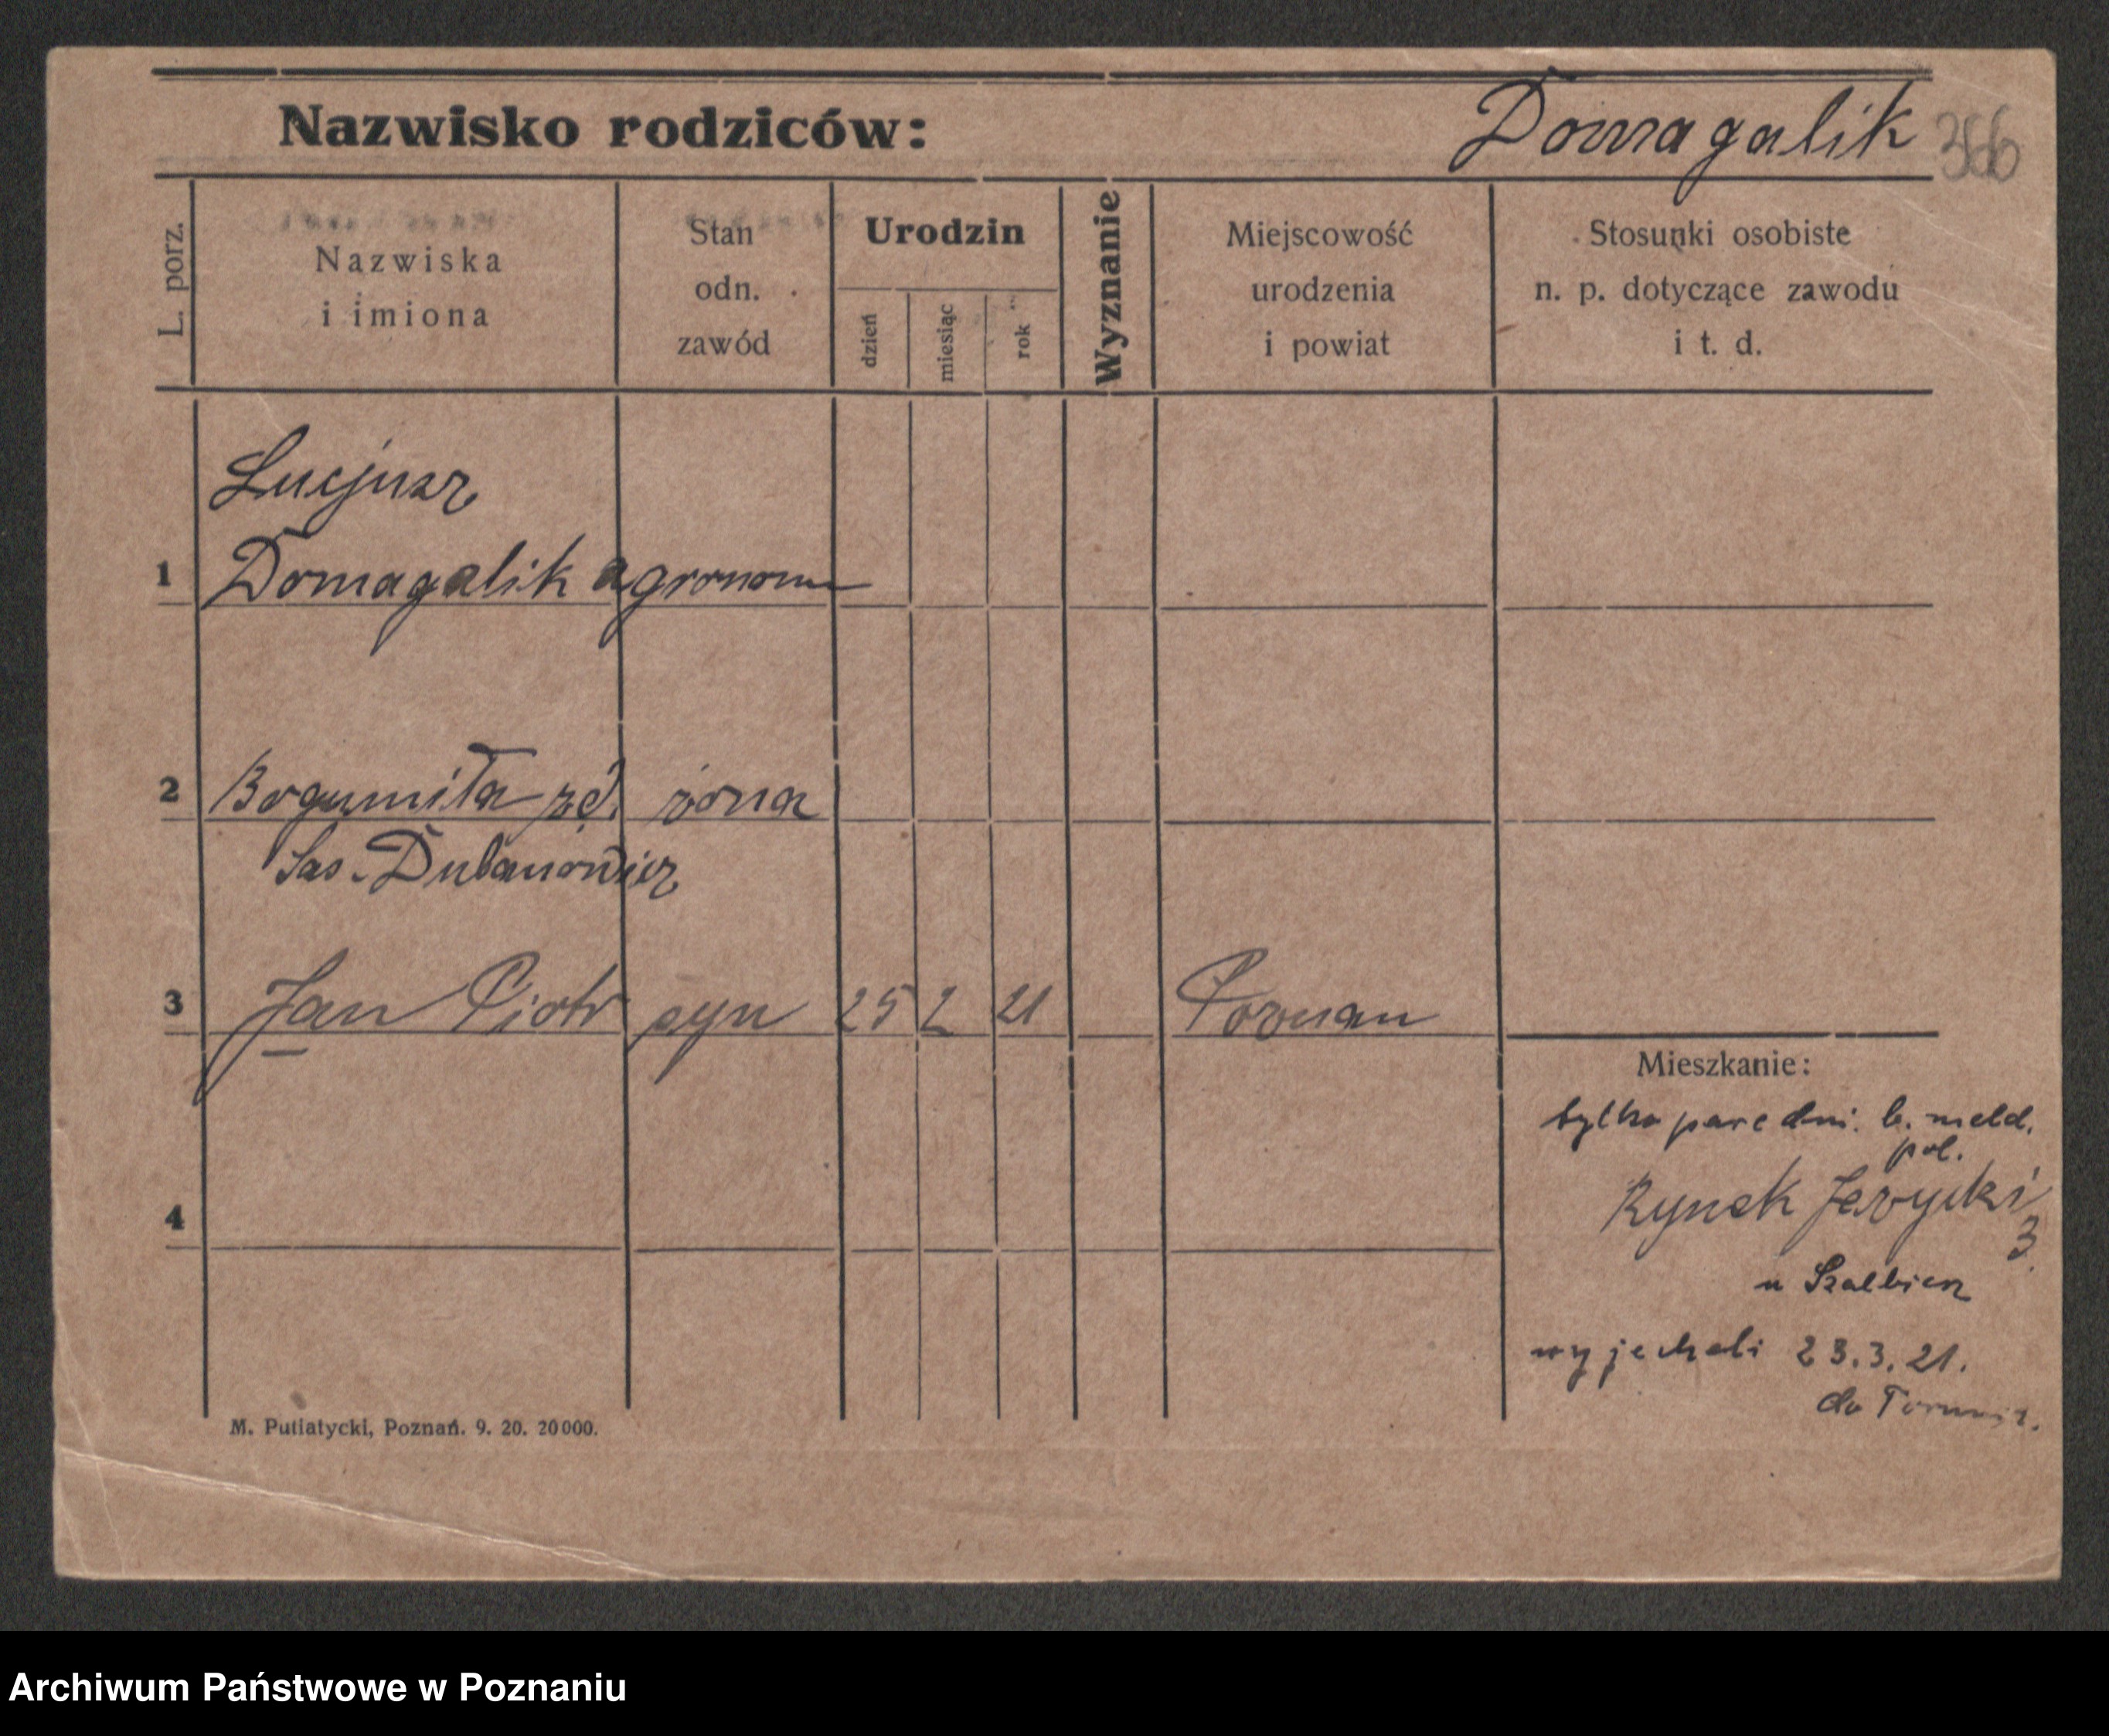 Nazwisko rodziców: Domagalik
L. porz.
Nazwiska i imiona
Stan odn. zawód
Urodzin
dzień
miesiąc
rok
Wyznanie
Miejscowość urodzenia i powiat
Stosunki osobiste n. p. dotyczące zawodu i t. d.
Lucjusz
1 Domagalik agronom
2 Bogumiła żona
Sas-Dubanowicz
3 Jan Piotr syn 25 2 21 Poznań
Mieszkanie:
tylko pare dni. b. meld.
pol.
Rynek Jerzycki
3
4
u
wyjechali 23.3.21.
do Torunia.
M. Putiatycki, Poznań. 9. 20. 20000.
Archiwum Państwowe w Poznaniu